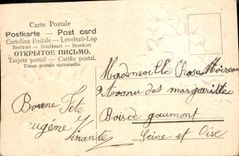 Carte Postale
Postkarte — Post card
Cartolina Postale — Levelező-Lap
Briefkort — Brevkort
ОТКРЫТОЕ ПИСЬМО.
Tarjeta postal — Cartão postal.
Union postale universelle.
Bonne Fête
Eugène
Mademoiselle Rose
Avenue des marguerites
gaumont
Seine et Oise